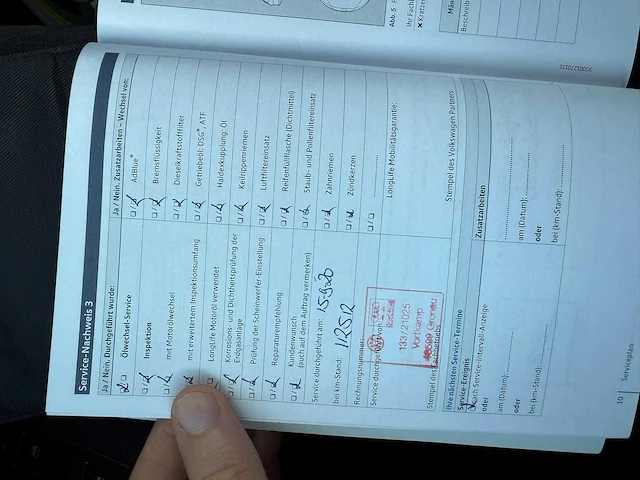 Service-Nachweis 3
Ja / Nein, Durchgeführt wurde:
Ölwechsel-Service
Inspektion
mit Motorölwechsel
mit erweitertem Inspektionsumfang
LongLife Motoröl verwendet
Korrosions- und Dichtheitsprüfung der
Erdgasanlage
Prüfung der Scheinwerfer-Einstellung
Reparaturempfehlung
Kundenwunsch
(auch auf dem Auftrag vermerken)
Service durchgeführt am:
bei km-Stand: 112512
Rechnungsnummer:
Service durchgeführt von:
193/21025
Gronau
Stempel des
Ja / Nein, Zusatzarbeiten – Wechsel von:
AdBlue®
Bremsflüssigkeit
Dieselkraftstofffilter
Getriebeöl: DSG®, ATF
Haldexkupplung: Öl
Keilrippenriemen
Luftfiltereinsatz
Reifenfüllflasche (Dichtmittel)
Staub- und Pollenfiltereinsatz
Zahnriemen
Zündkerzen
LongLife Mobilitätsgarantie:
Stempel des Volkswagen Partners
Ihre nächsten Service-Termine
Service-Ereignis
nach Service-Intervall-Anzeige
oder
am (Datum):
oder
bei (km-Stand):
Zusatzarbeiten
am (Datum):
oder
bei (km-Stand):
10 Serviceplan
Abb. 5